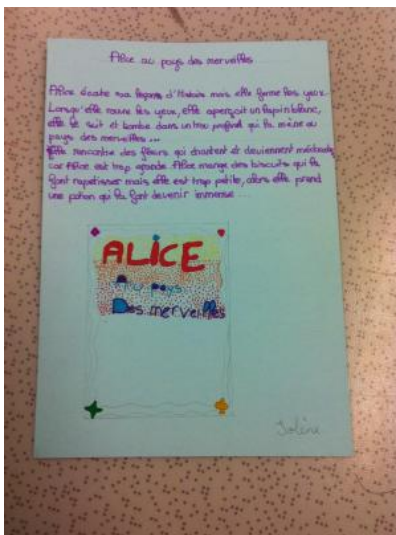 Alice au pays des merveilles
Alice écoute sa leçons d'Histoire mais elle ferme les yeux.
Lorsqu'elle rouvre les yeux, elle aperçoit un lapin blanc,
elle le suit et tombe dans un trou profond qui la mène au
pays des merveilles ...
Elle rencontre des fleurs qui chantent et deviennent méchantes
car Alice est trop grande. Alice mange des biscuits qui la
font rapetisser mais elle est trop petite, alors elle prend
une potion qui la font devenir immense ...
ALICE
Au pays
Des merveilles
Jolène